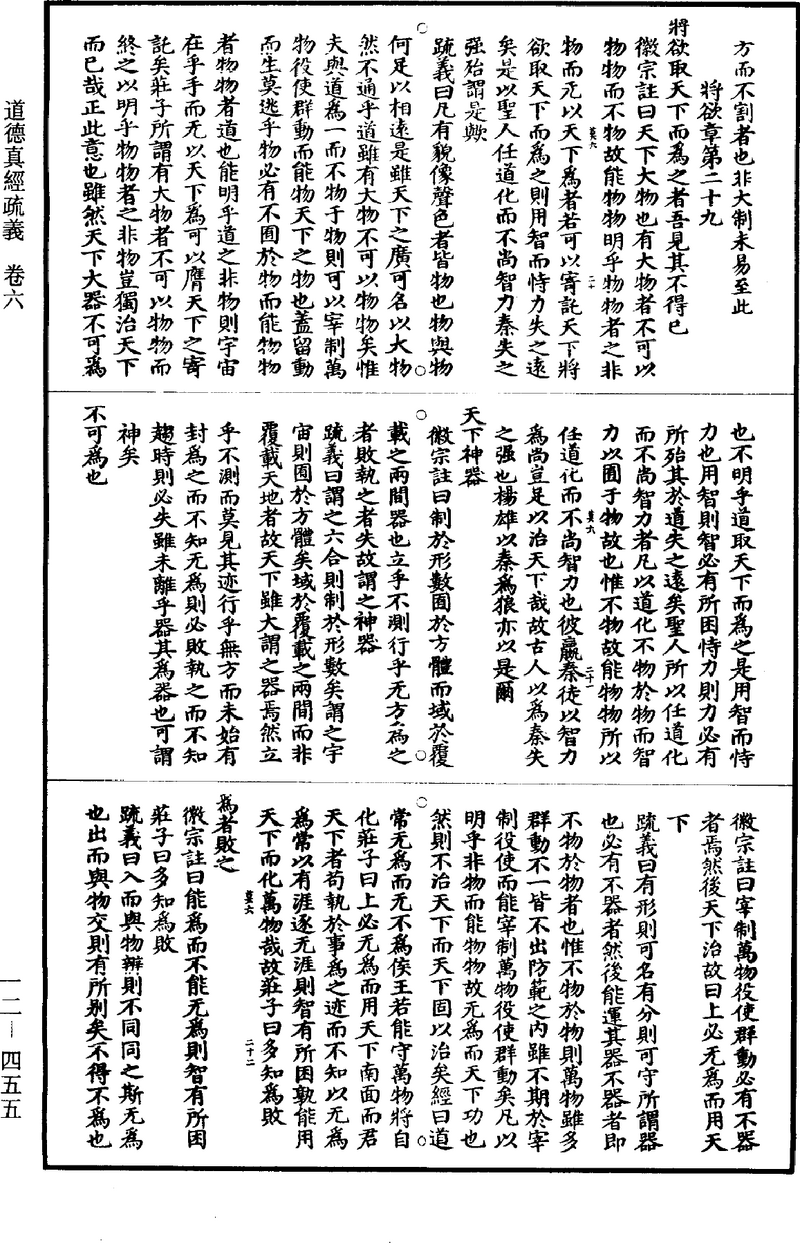 道德真經疏義　卷六
一二—四五五
方而不割者也非大制未易至此
將欲章第二十九
將欲取天下而爲之者吾見其不得已
徽宗註曰天下大物也有大物者不可以
物物而不物故能物物明乎物物者之非
莫六　二十
物而无以天下爲者若可以寄託天下將
欲取天下而爲之則用智而恃力失之遠
矣是以聖人任道化而不尚智力秦失之
强殆謂是歟
疏義曰凡有貌像聲色者皆物也物與物
何足以相遠是雖天下之廣可名以大物
然不通乎道雖有大物不可以物物矣惟
夫與道爲一而不物于物則可以宰制萬
物役使群動而能物天下之物也蓋留動
而生莫逃乎物必有不囿於物而能物物
者物物者道也能明乎道之非物則宇宙
在乎手而无以天下爲可以膺天下之寄
託矣莊子所謂有大物者不可以物物而
終之以明乎物物者之非物豈獨治天下
而已哉正此意也雖然天下大器不可爲
也不明乎道取天下而爲之是用智而恃
力也用智則智必有所困恃力則力必有
所殆其於道失之遠矣聖人所以任道化
而不尚智力者凡以道化不物於物而智
力以囿于物故也惟不物故能物物所以
莫六　二十一
任道化而不尚智力也彼嬴秦徒以智力
爲尚豈足以治天下哉故古人以爲秦失
之强也楊雄以秦爲狼亦以是爾
天下神器
徽宗註曰制於形數囿於方體而域於覆
載之兩間器也立乎不測行乎无方爲之
者敗執之者失故謂之神器
疏義曰謂之六合則制於形數矣謂之宇
宙則囿於方體矣域於覆載之兩間而非
覆載天地者故天下雖大謂之器焉然立
乎不測而莫見其迹行乎無方而未始有
封爲之而不知无爲則必敗執之而不知
趨時則必失雖未離乎器其爲器也可謂
神矣
不可爲也
徽宗註曰宰制萬物役使群動必有不器
者焉然後天下治故曰上必无爲而用天
下
疏義曰有形則可名有分則可守所謂器
也必有不器者然後能運其器不器者即
不物於物者也惟不物於物則萬物雖多
群動不一皆不出防範之内雖不期於宰
制役使而能宰制萬物役使群動矣凡以
明乎非物而能物物故无爲而天下功也
然則不治天下而天下固以治矣經曰道
常无爲而无不爲侯王若能守萬物將自
化莊子曰上必无爲而用天下南面而君
天下者苟執於事爲之迹而不知以无爲
爲常以有涯逐无涯則智有所困孰能用
天下而化萬物哉故莊子曰多知爲敗
莫六　二十二
爲者敗之
徽宗註曰能爲而不能无爲則智有所困
莊子曰多知爲敗
疏義曰入而與物辨則不同同之斯无爲
也出而與物交則有所别矣不得不爲也